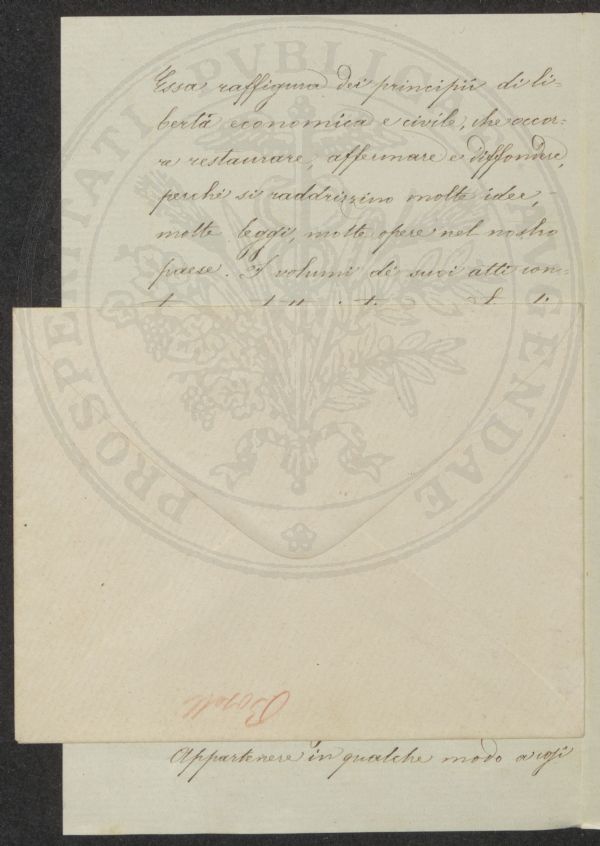 Essa raffigura dei principii di li-
bertà economica e civile, che occor-
re restaurare, affermare e diffondere,
perchè si raddrizzino molte idee,
molte leggi, molte opere nel nostro
paese. I volumi de' suoi atti con-
Appartenere in qualche modo a così
Boselli
PROSPERITATI PVBLICAE AVGENDAE